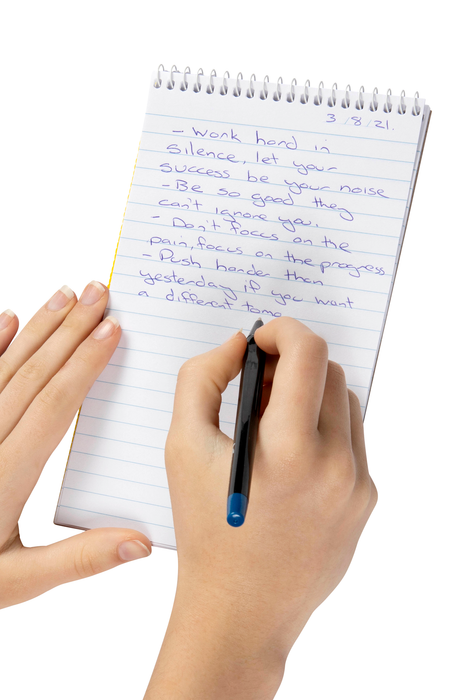 3/8/21.
- Work hard in
silence, let your
success be your noise
- Be so good they
can't ignore you.
- Don't focus on the
pain, focus on the progress
- Push harder than
yesterday if you want
a different tomo